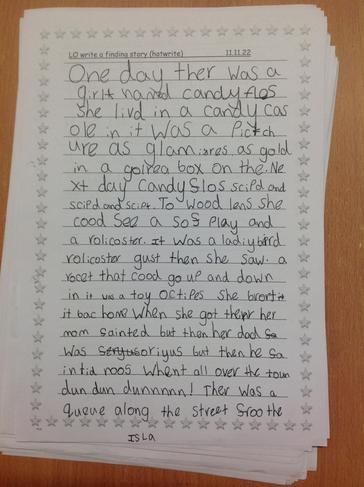 LO write a finding story (hotwrite) 11.11.22
One day ther was a
girlt named candy flos
she livd in a candy cas
ole in it was a Pictch
ure as glamires as gold
in a golrea box on the. Ne
xt day candyslos scipd and
scipd and scipt. To wood lens she
cood see a soS play and
a rolicoster. It was a ladiybird
rolicoster gust then she saw. a
rocet that cood go up and down
in it was a toy octipes she brort it
it bac home when she got there her
mom sainted but then her dad sa
was seryusoriyus but then he sa
intid noos whent all over the toun
dun dun dunnnnn! Ther was a
queue along the street sroo the
ISLA